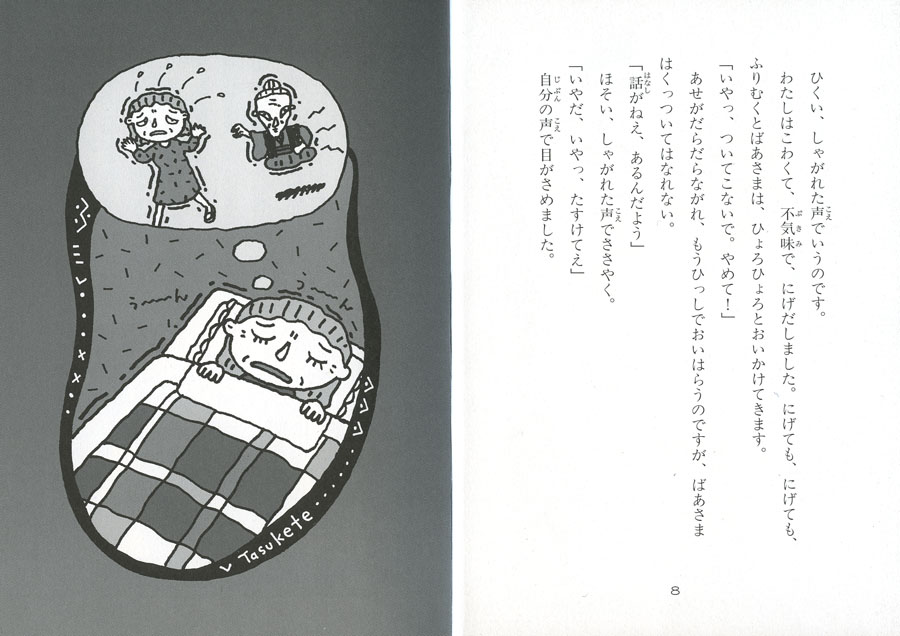 ひくい、しゃがれた声でいうのです。
わたしはこわくて、不気味で、にげだしました。にげても、にげても、
ふりむくとばあさまは、ひょろひょろとおいかけてきます。
「いやっ、ついてこないで。やめて！」
あせがだらだらながれ、もうひっしでおいはらうのですが、ばあさま
はくっついてはなれない。
「話がねえ、あるんだよう」
ほそい、しゃがれた声でささやく。
「いやだ、いやっ、たすけてえ」
自分の声で目がさめました。
8
う〜〜ん
う〜〜ん
Tasukete